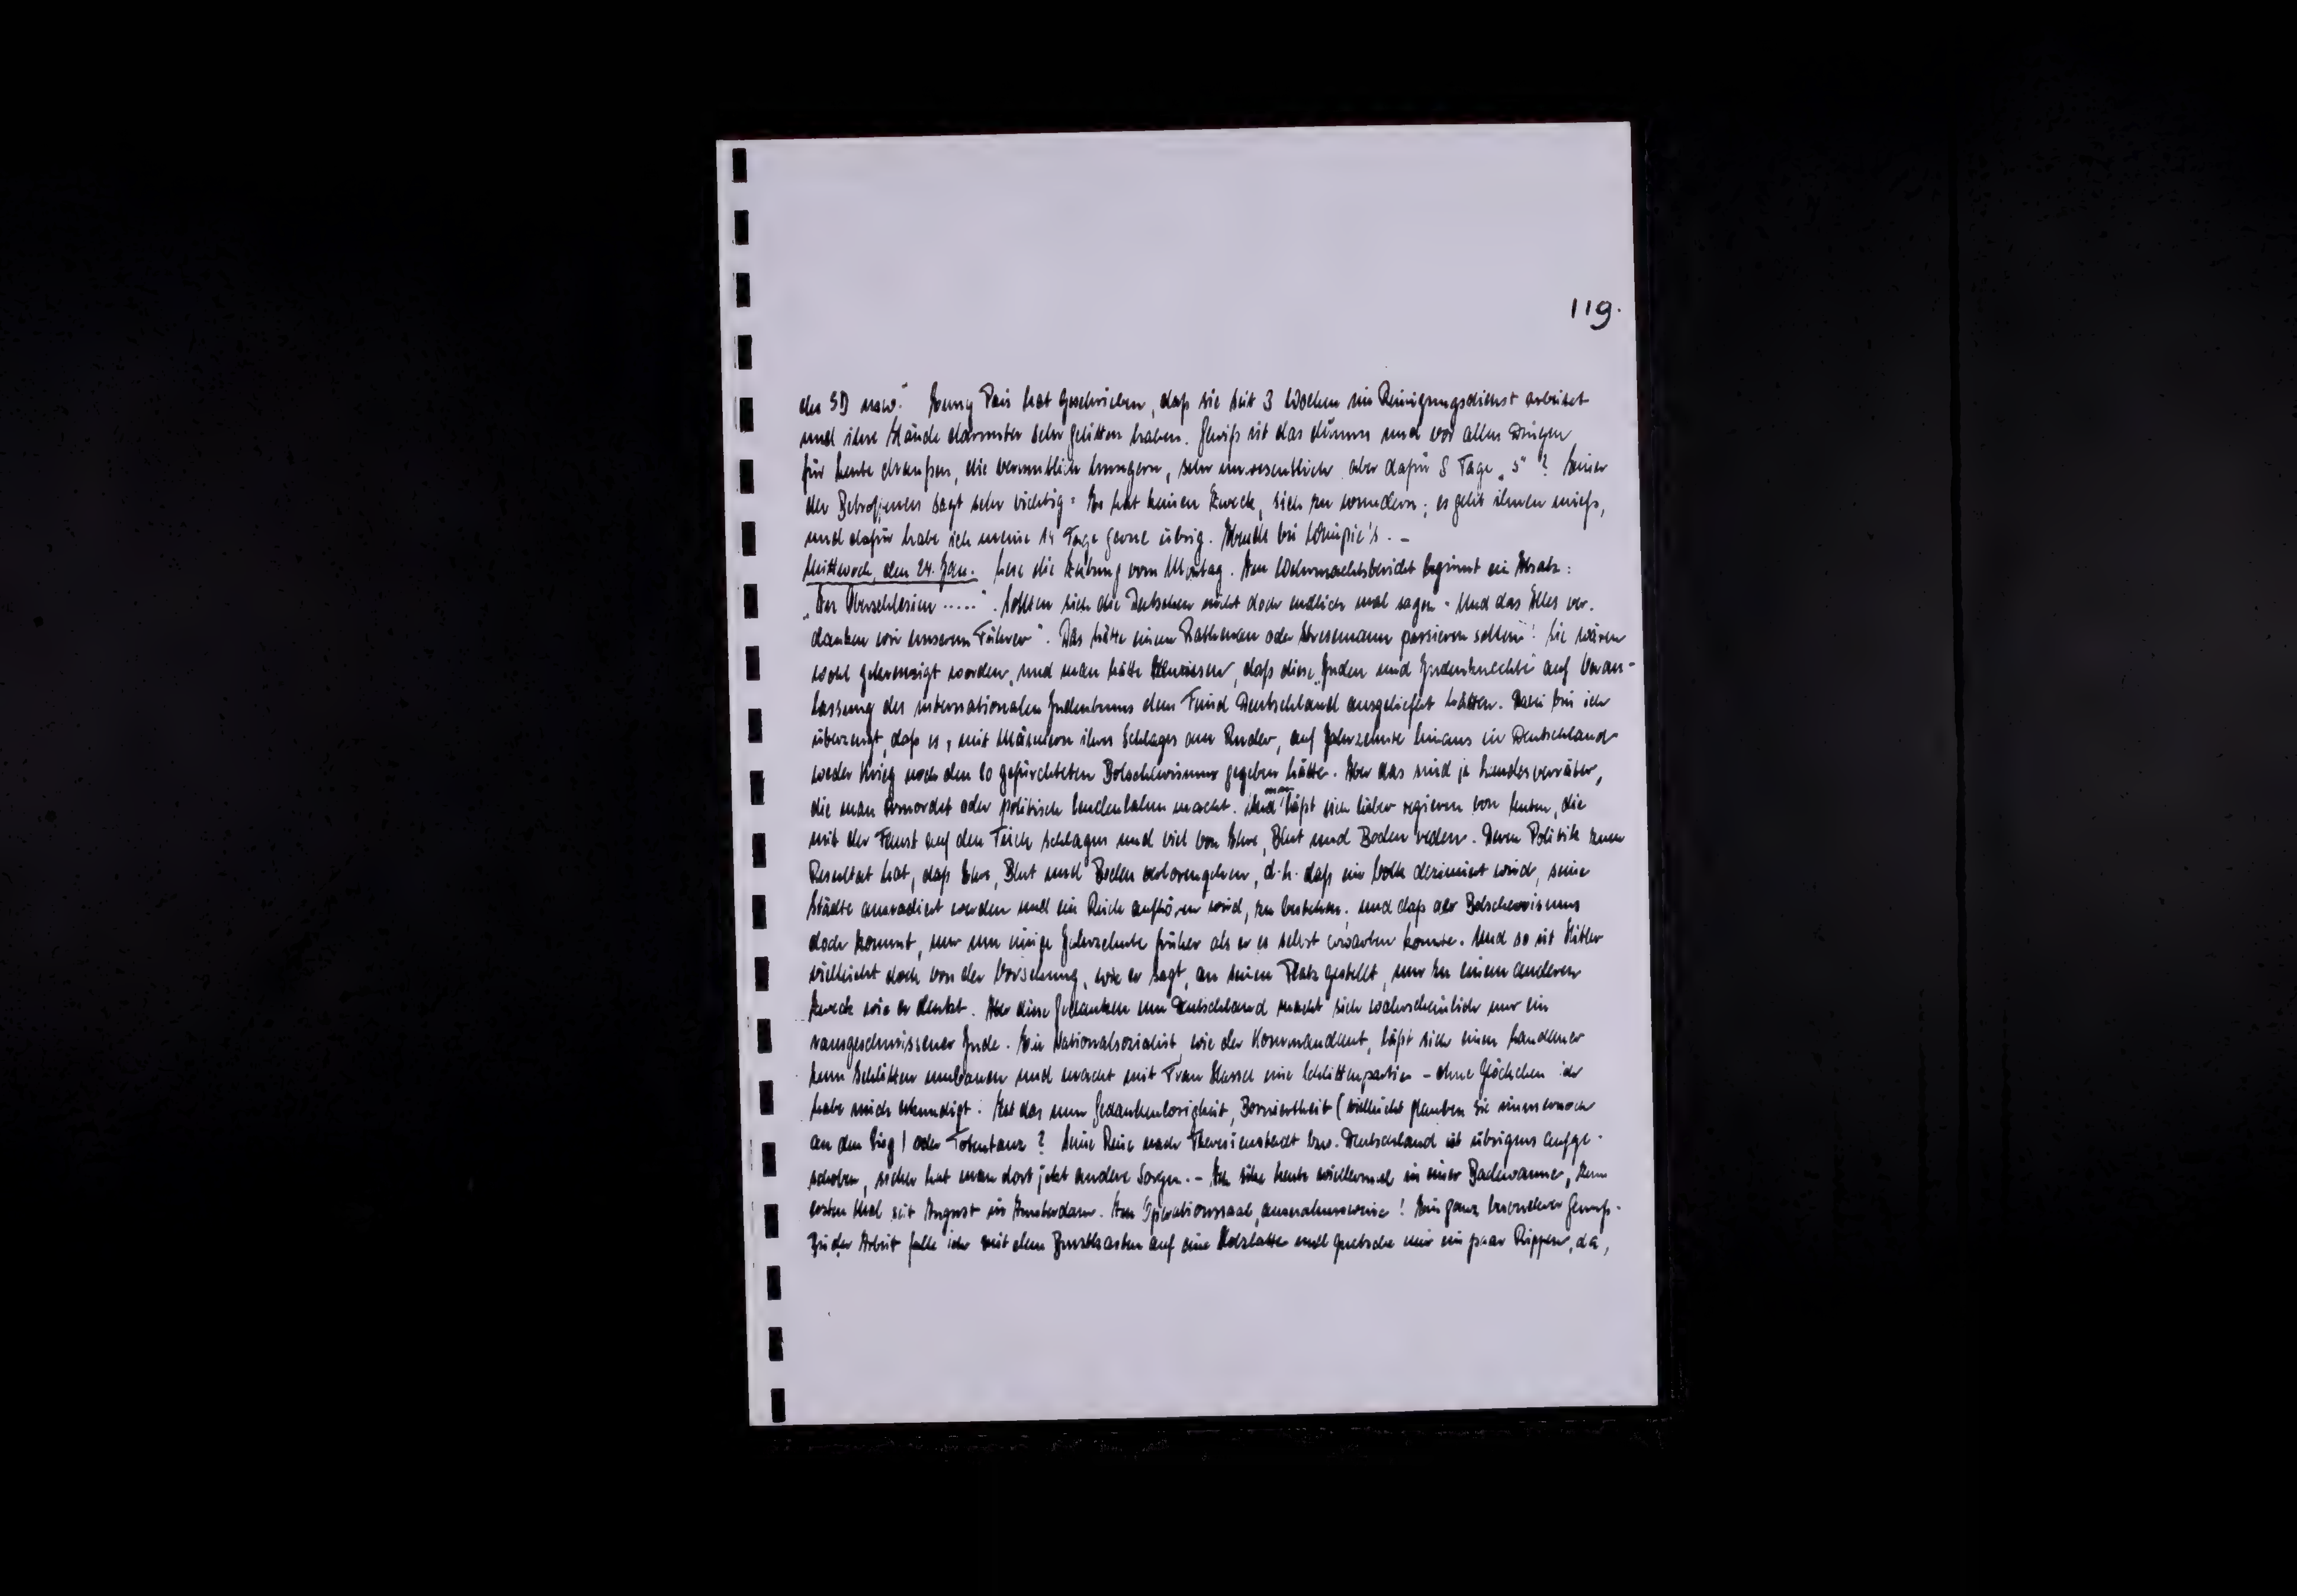 119.
der SD usw." Jenny Pais hat geschrieben, daß sie seit 3 Wochen im Reinigungsdienst arbeitet
und ihre Hände darunter sehr gelitten haben. Gewiß ist das dumm und vor allen Dingen
für Leute draußen, die vermutlich hungern, sehr unwesentlich aber dafür 8 Tage „S"? Einer
der Betroffenen sagt sehr richtig: Es hat keinen Zweck, sich zu wundern; es geht ihnen mieß,
und dafür habe ich meine 14 Tage gerne übrig. Abends bei
Mittwoch, den 24. Jan. Lese die Zeitung vom Montag. Im Wehrmachtsbericht beginnt ein Absatz:
„Im Oberschlesien ....." Sollten sich die Deutschen nicht doch endlich mal sagen: Und das Alles ver-
danken wir unserem Führer". Das hätte einem Rathenau oder Stresemann passieren sollen! Sie wären
wohl gekreuzigt worden, und man hätte bewiesen, daß diese „Juden und Judenknechte" auf Veran-
lassung des internationalen Judentums dem Feind Deutschland ausgeliefert hätten. Dabei bin ich
überzeugt, daß es, mit Männern ihres Schlages am Ruder, auf Jahrzehnte hinaus in Deutschland
weder Krieg noch den so gefürchteten Bolschewismus gegeben hätte. Aber das sind ja Landesverräter,
die man ermordet oder politisch lendenlahm macht. Und man läßt sich lieber regieren von Leuten, die
mit der Faust auf den Tisch schlagen und viel von Ehre, Blut und Boden reden. Deren Politik zum
Resultat hat, daß Ehre, Blut und Boden verlorengehen, d.h. daß ein Volk dezimiert wird, seine
Städte ausradiert werden und ein Reich aufhören wird, zu bestehen; und daß der Bolschewismus
doch kommt, nur um einige Jahrzehnte früher als er es selbst erwarten konnte. Und so ist Hitler
vielleicht doch von der Vorsehung, wie er sagt, an seinen Platz gestellt, nur zu einem anderen
Zweck wie er denkt. Aber diese Gedanken um Deutschland macht sich wahrscheinlich nur ein
rausgeschmissener Jude. Ein Nationalsozialist, wie der Kommandant, läßt sich einen Landauer
zum Schlitten umbauen und macht mit Frau Hassel eine Schlittenpartie – ohne Glöckchen ich
habe mich erkundigt. Ist das nun Gedankenlosigkeit, Borniertheit (vielleicht glauben sie immer noch
an den Sieg) oder Totentanz? Seine Reise nach Theresienstadt bzw. Deutschland ist übrigens aufge-
schoben, sicher hat man dort jetzt andere Sorgen. – Ich sitze heute wiedermal in einer Badewanne, zum
ersten Mal seit August in Amsterdam. Im Operationssaal, ausnahmsweise! Ein ganz besonderer Genuß.
Bei der Arbeit falle ich mit dem Brustkasten auf eine Holzlatte und quetsche mir ein paar Rippen, da,